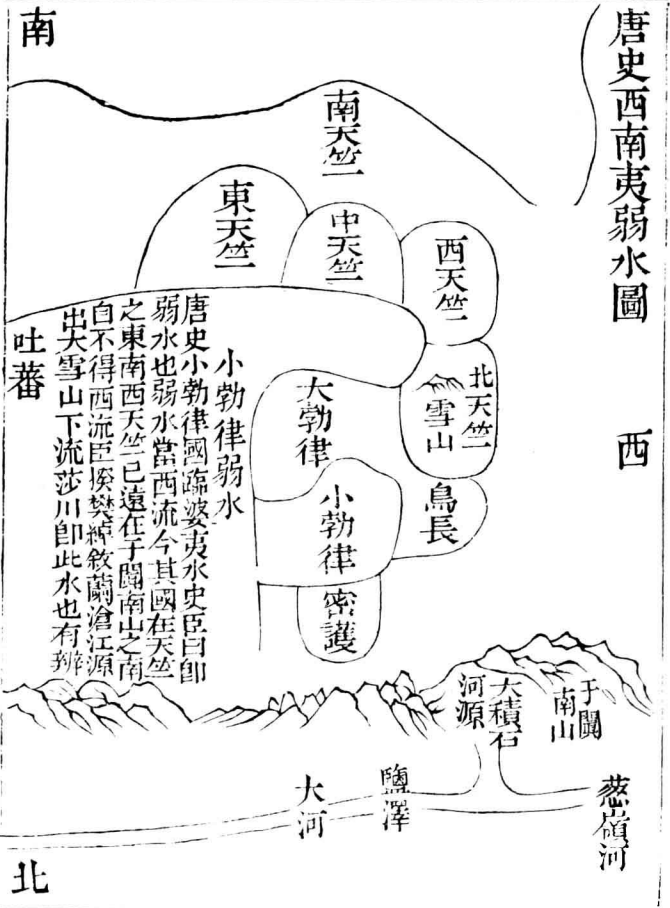 唐史西南夷弱水圖
西
南
南天竺
東天竺
中天竺
西天竺
北天竺
雪山
烏長
大勃律
小勃律
密護
小勃律弱水
唐史小勃律國臨婆夷水史臣曰卽
弱水也弱水當西流今其國在天竺
之東南西天竺已遠在于闐南山之南
自不得西流臣揆樊綽敘蘭滄江源
出大雪山下流莎川卽此水也有辨
吐蕃
于闐
南山
大積石
河源
葱嶺河
鹽澤
大河
北